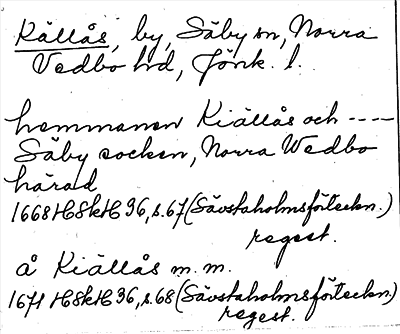 Källås, by, Säby sn, Norra
Vedbo hd, Jönk. l.
hemmanen Kiällås och ----
Säby socken, Norra Wedbo
härad
1668 HSkH 36, s. 67 (Sävstaholmsförteckn.)
regest.
å Kiällås m. m.
1671 HSkH 36, s. 68 (Sävstaholmsförteckn.)
regest.